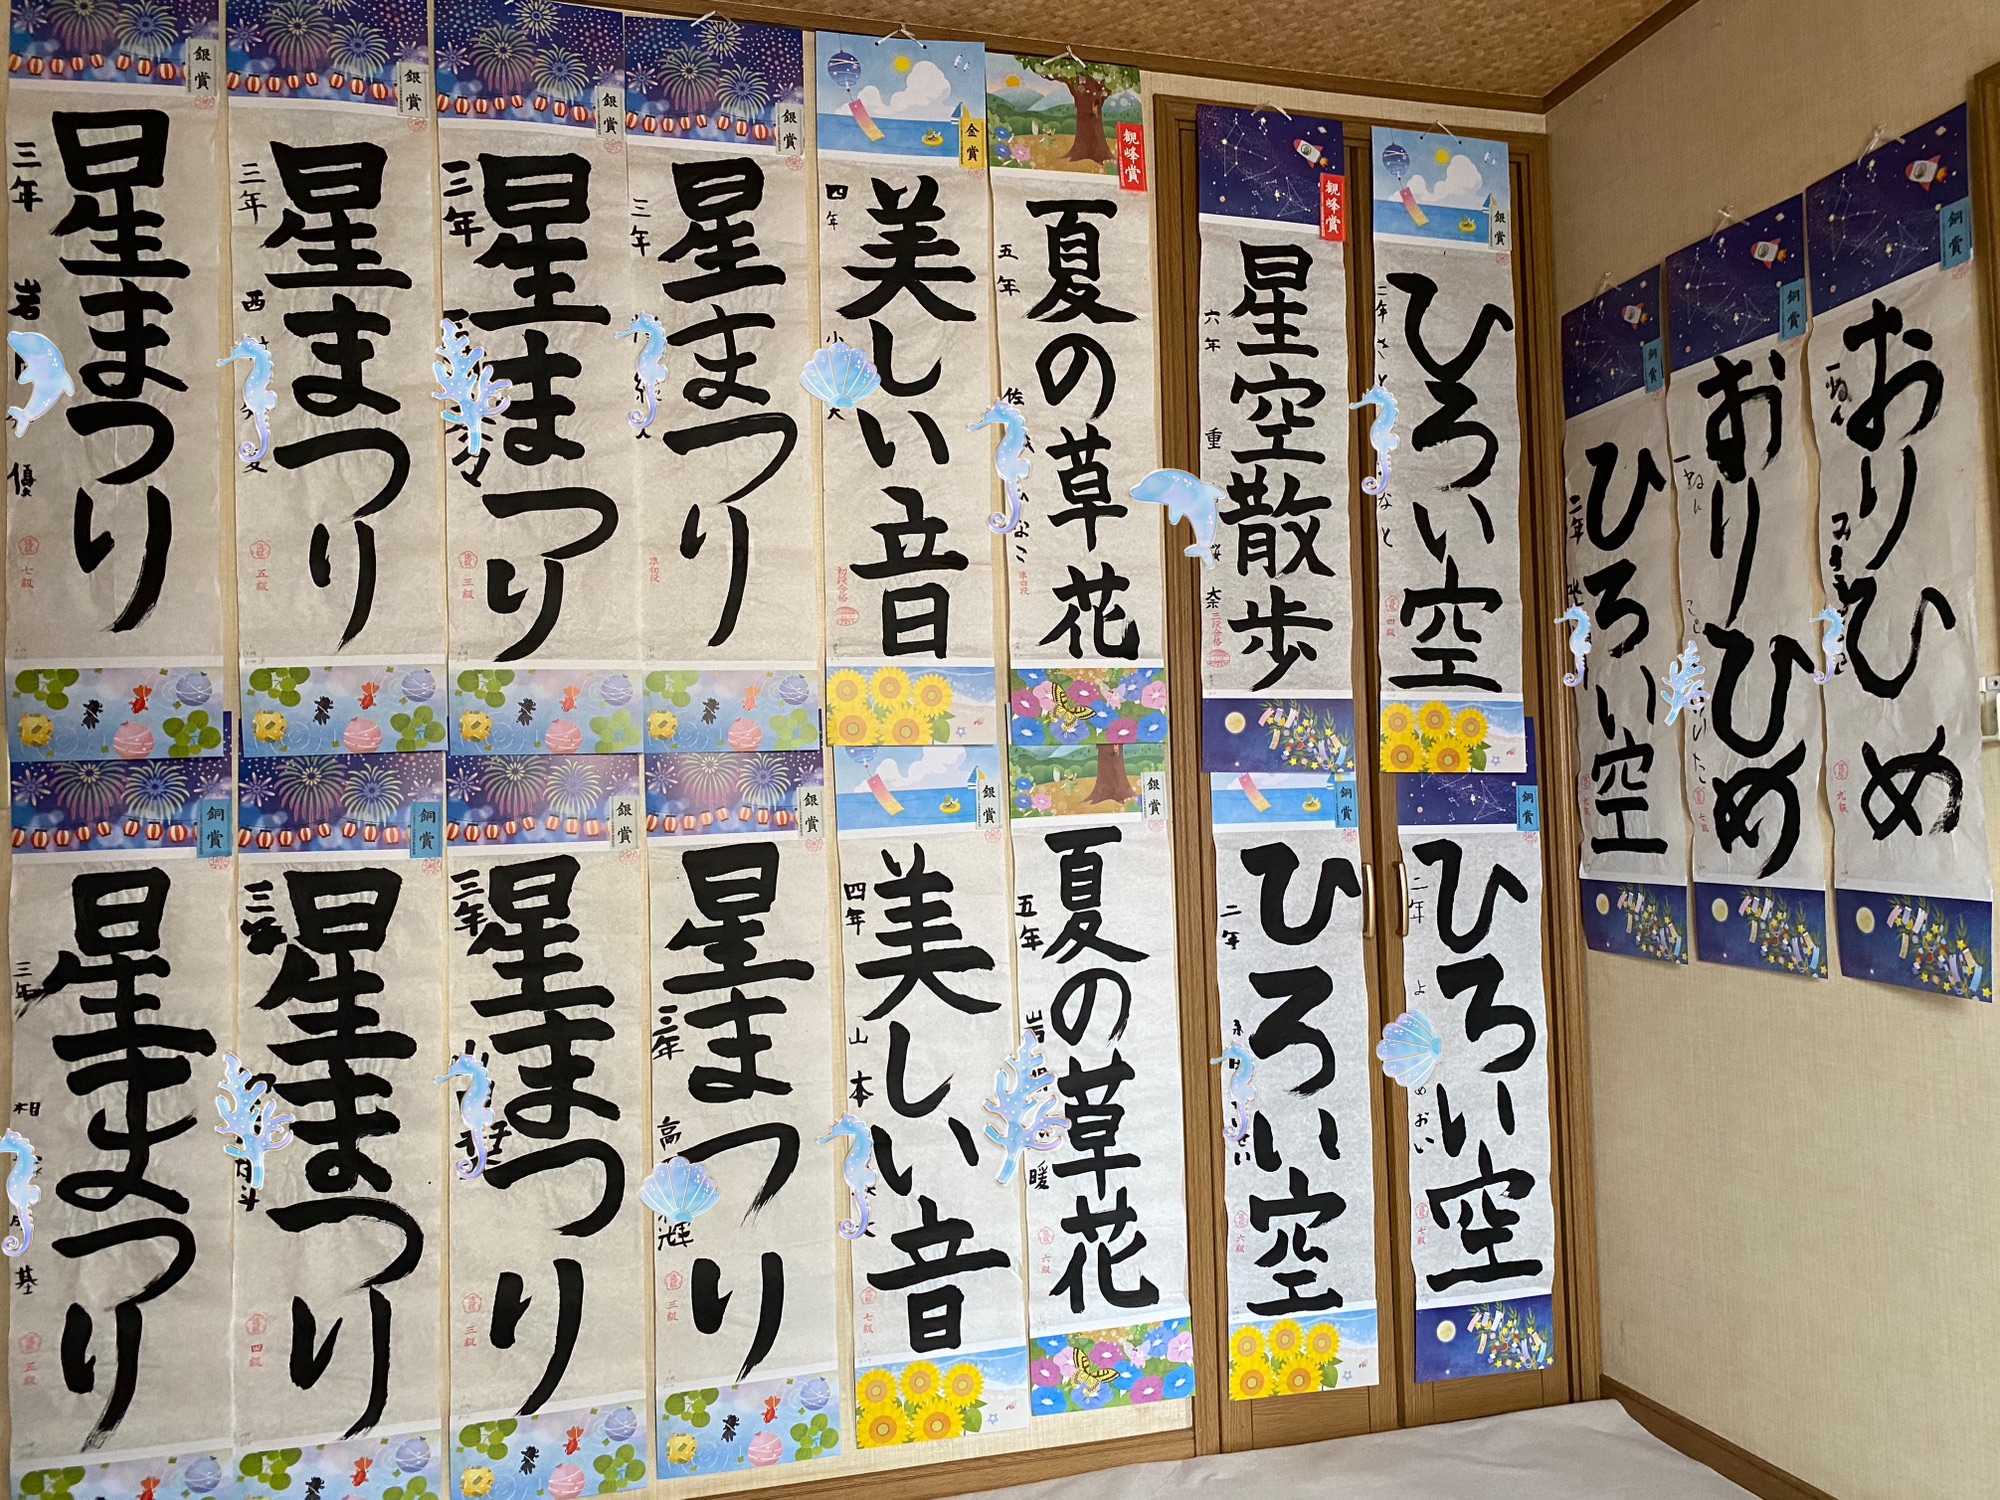 銀賞
星まつり
三年
岩
優
七級
銀賞
星まつり
三年
西
五級
銀賞
星まつり
三年
々
三級
銀賞
星まつり
三年
準初段
金賞
美しい音
四年
小
大
初段合格
観峰賞
夏の草花
五年
佐
こ
準四段
観峰賞
星空散歩
六年
重
奈
三段合格
銀賞
ひろい空
二年
さと
なと
四級
銅賞
ひろい空
二年
六級
銅賞
おりひめ
一ねん
七級
銅賞
おりひめ
一ねん
九級
銅賞
星まつり
三年
相
基
五級
銅賞
星まつり
三年
斗
四級
銀賞
星まつり
三年
山
栞
三級
銀賞
星まつり
三年
高
輝
三級
銀賞
美しい音
四年
山本
大
七級
銀賞
夏の草花
五年
岩
暖
六級
銅賞
ひろい空
二年
せい
六級
銅賞
ひろい空
二年
よ
めおい
七級